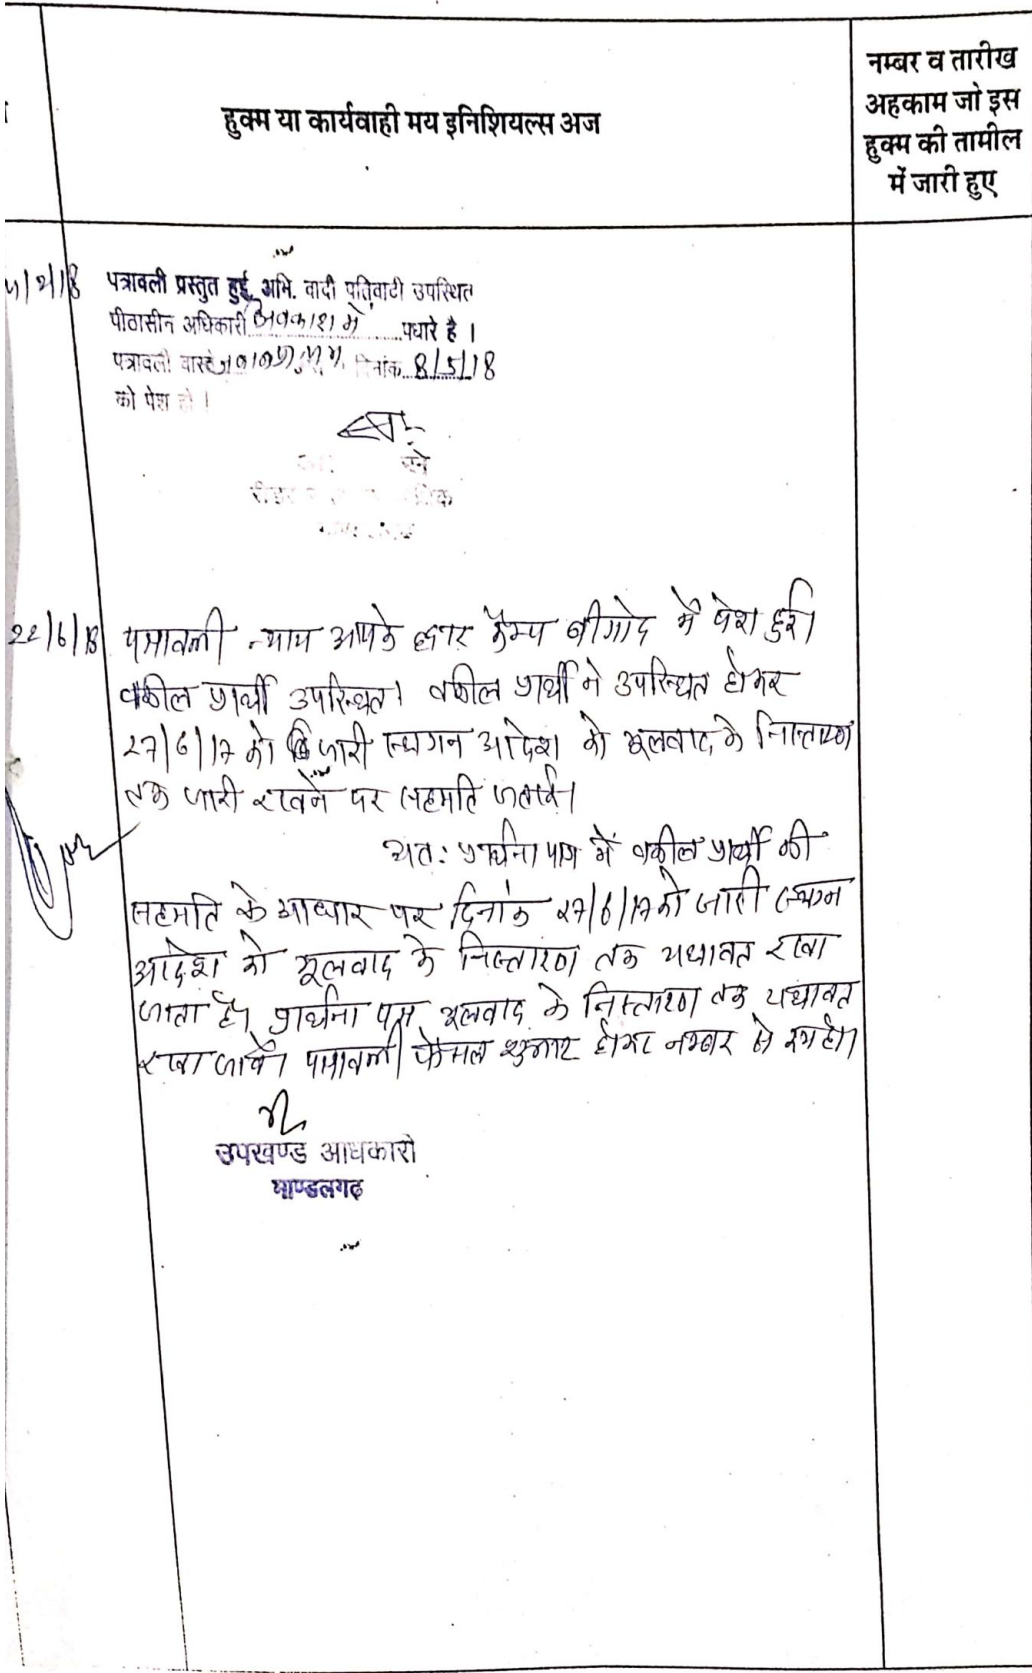 हुक्म या कार्यवाही मय इनिशियल्स अज
नम्बर व तारीख
अहकाम जो इस
हुक्म की तामील
में जारी हुए
पत्रावली प्रस्तुत हुई, अभि. वादी प्रतिवादी उपस्थित
पीठासीन अधिकारी अवकाश में पधारे है ।
पत्रावली वास्ते दिनांक 8/5/18
को पेश हो ।
22/6/18 पत्रावली न्याय आपके द्वार कैम्प बीगोद में पेश हुई।
वकील प्रार्थी उपस्थित। वकील प्रार्थी ने उपस्थित होकर
27/6/17 को जारी स्थगन आदेश को मूलवाद के निस्तारण
तक जारी रखने पर सहमति जताई।
अतः प्रार्थना पत्र में वकील प्रार्थी की
सहमति के आधार पर दिनांक 27/6/17 को जारी स्थगन
आदेश को मूलवाद के निस्तारण तक यथावत रखा
जाता है। प्रार्थना पत्र मूलवाद के निस्तारण तक यथावत
रखा जावे। पत्रावली फैसल शुमार होकर नम्बर से कम हो।
उपखण्ड अधिकारी
माण्डलगढ़